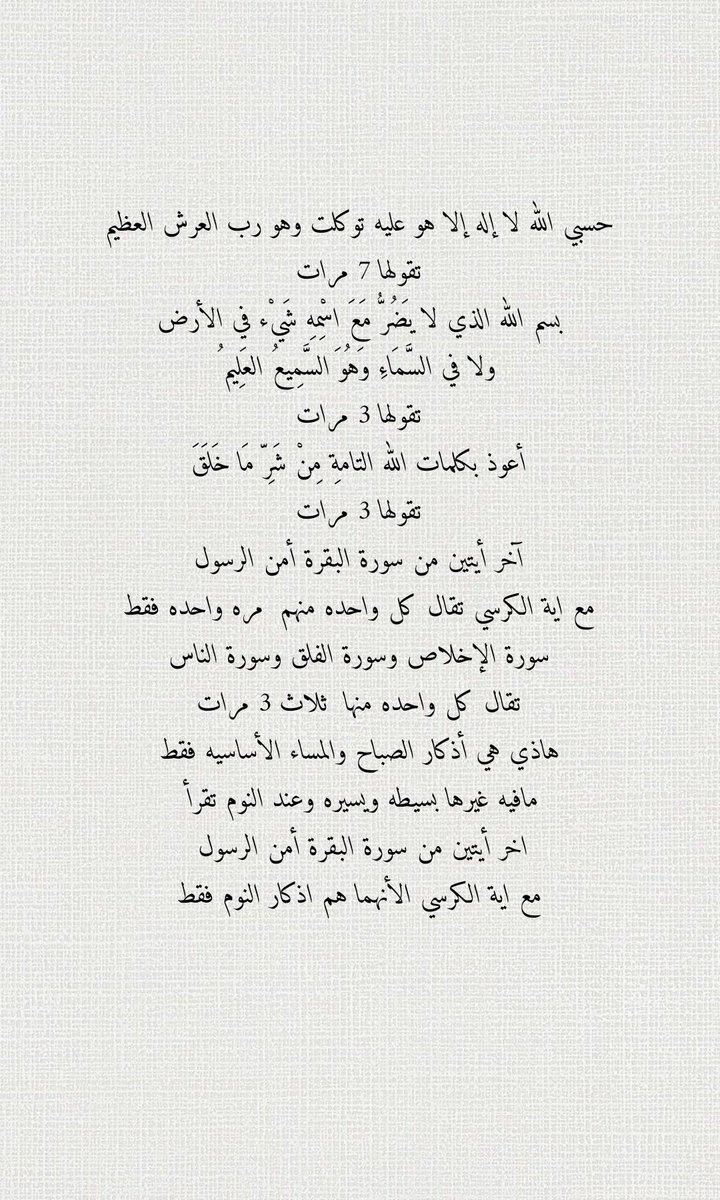 حسبي الله لا إله إلا هو عليه توكلت وهو رب العرش العظيم
تقولها 7 مرات
بسم الله الذي لا يَضُرُّ مَعَ اسْمِهِ شَيْء في الأرض
ولا في السَّمَاءِ وَهُوَ السَّمِيعُ العَلِيمُ
تقولها 3 مرات
أعوذ بكلمات الله التامةِ مِنْ شَرِّ مَا خَلَقَ
تقولها 3 مرات
آخر أيتين من سورة البقرة أمن الرسول
مع اية الكرسي تقال كل واحده منهم مره واحده فقط
سورة الإخلاص وسورة الفلق وسورة الناس
تقال كل واحده منها ثلاث 3 مرات
هاذي هي أذكار الصباح والمساء الأساسيه فقط
مافيه غيرها بسيطه ويسيره وعند النوم تقرأ
اخر أيتين من سورة البقرة أمن الرسول
مع اية الكرسي الأنهما هم اذكار النوم فقط